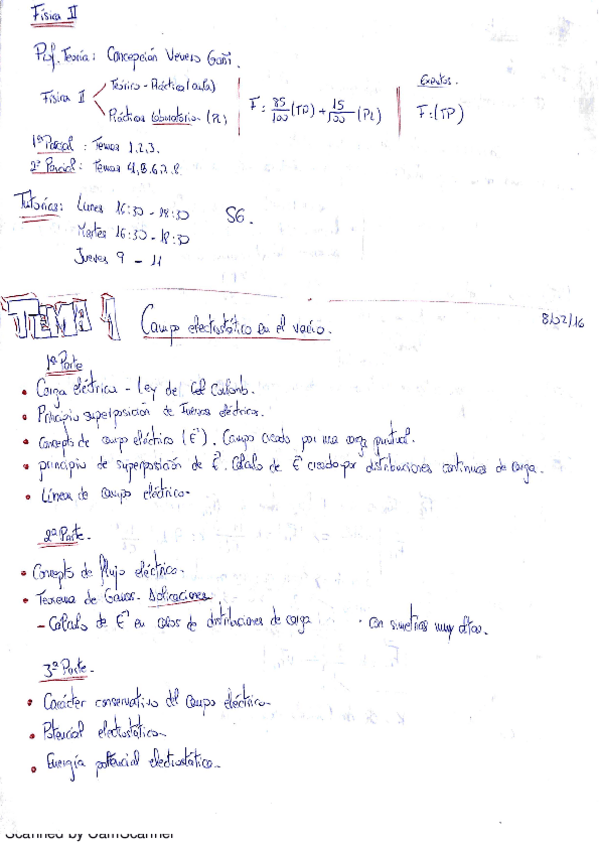 Física II
Prof. Teoría: Concepción
Física II
Teórico - Práctico (aula)
Práctica Laboratorio (PL)
F = 85/100 (TP) + 15/100 (PL)
Exentos.
F = (TP)
1º Parcial : Temas 1,2,3.
2º Parcial : Temas 4,5,6,7,8
Tutorías: Lunes 16:30 - 18:30
S6.
Martes 16:30 - 18:30
Jueves 9 - 11
TEMA 1
Campo electrostático en el vacío.
8/02/16
1ª Parte
• Carga eléctrica - Ley de Coulomb.
• Principio superposición de fuerzas eléctricas.
• Concepto de campo eléctrico (E). Campo creado por una carga puntual.
• principio de superposición de E. Cálculo de E creado por distribuciones continuas de carga.
• Línea de campo eléctrico.
2ª Parte.
• Concepto de flujo eléctrico.
• Teorema de Gauss. Aplicaciones
- Cálculo de E en casos de distribuciones de carga
· con simetrías muy altas.
3ª Parte.
• Carácter conservativo del campo eléctrico.
• Potencial electrostático.
• Energía potencial electrostático.
Scanned by CamScanner